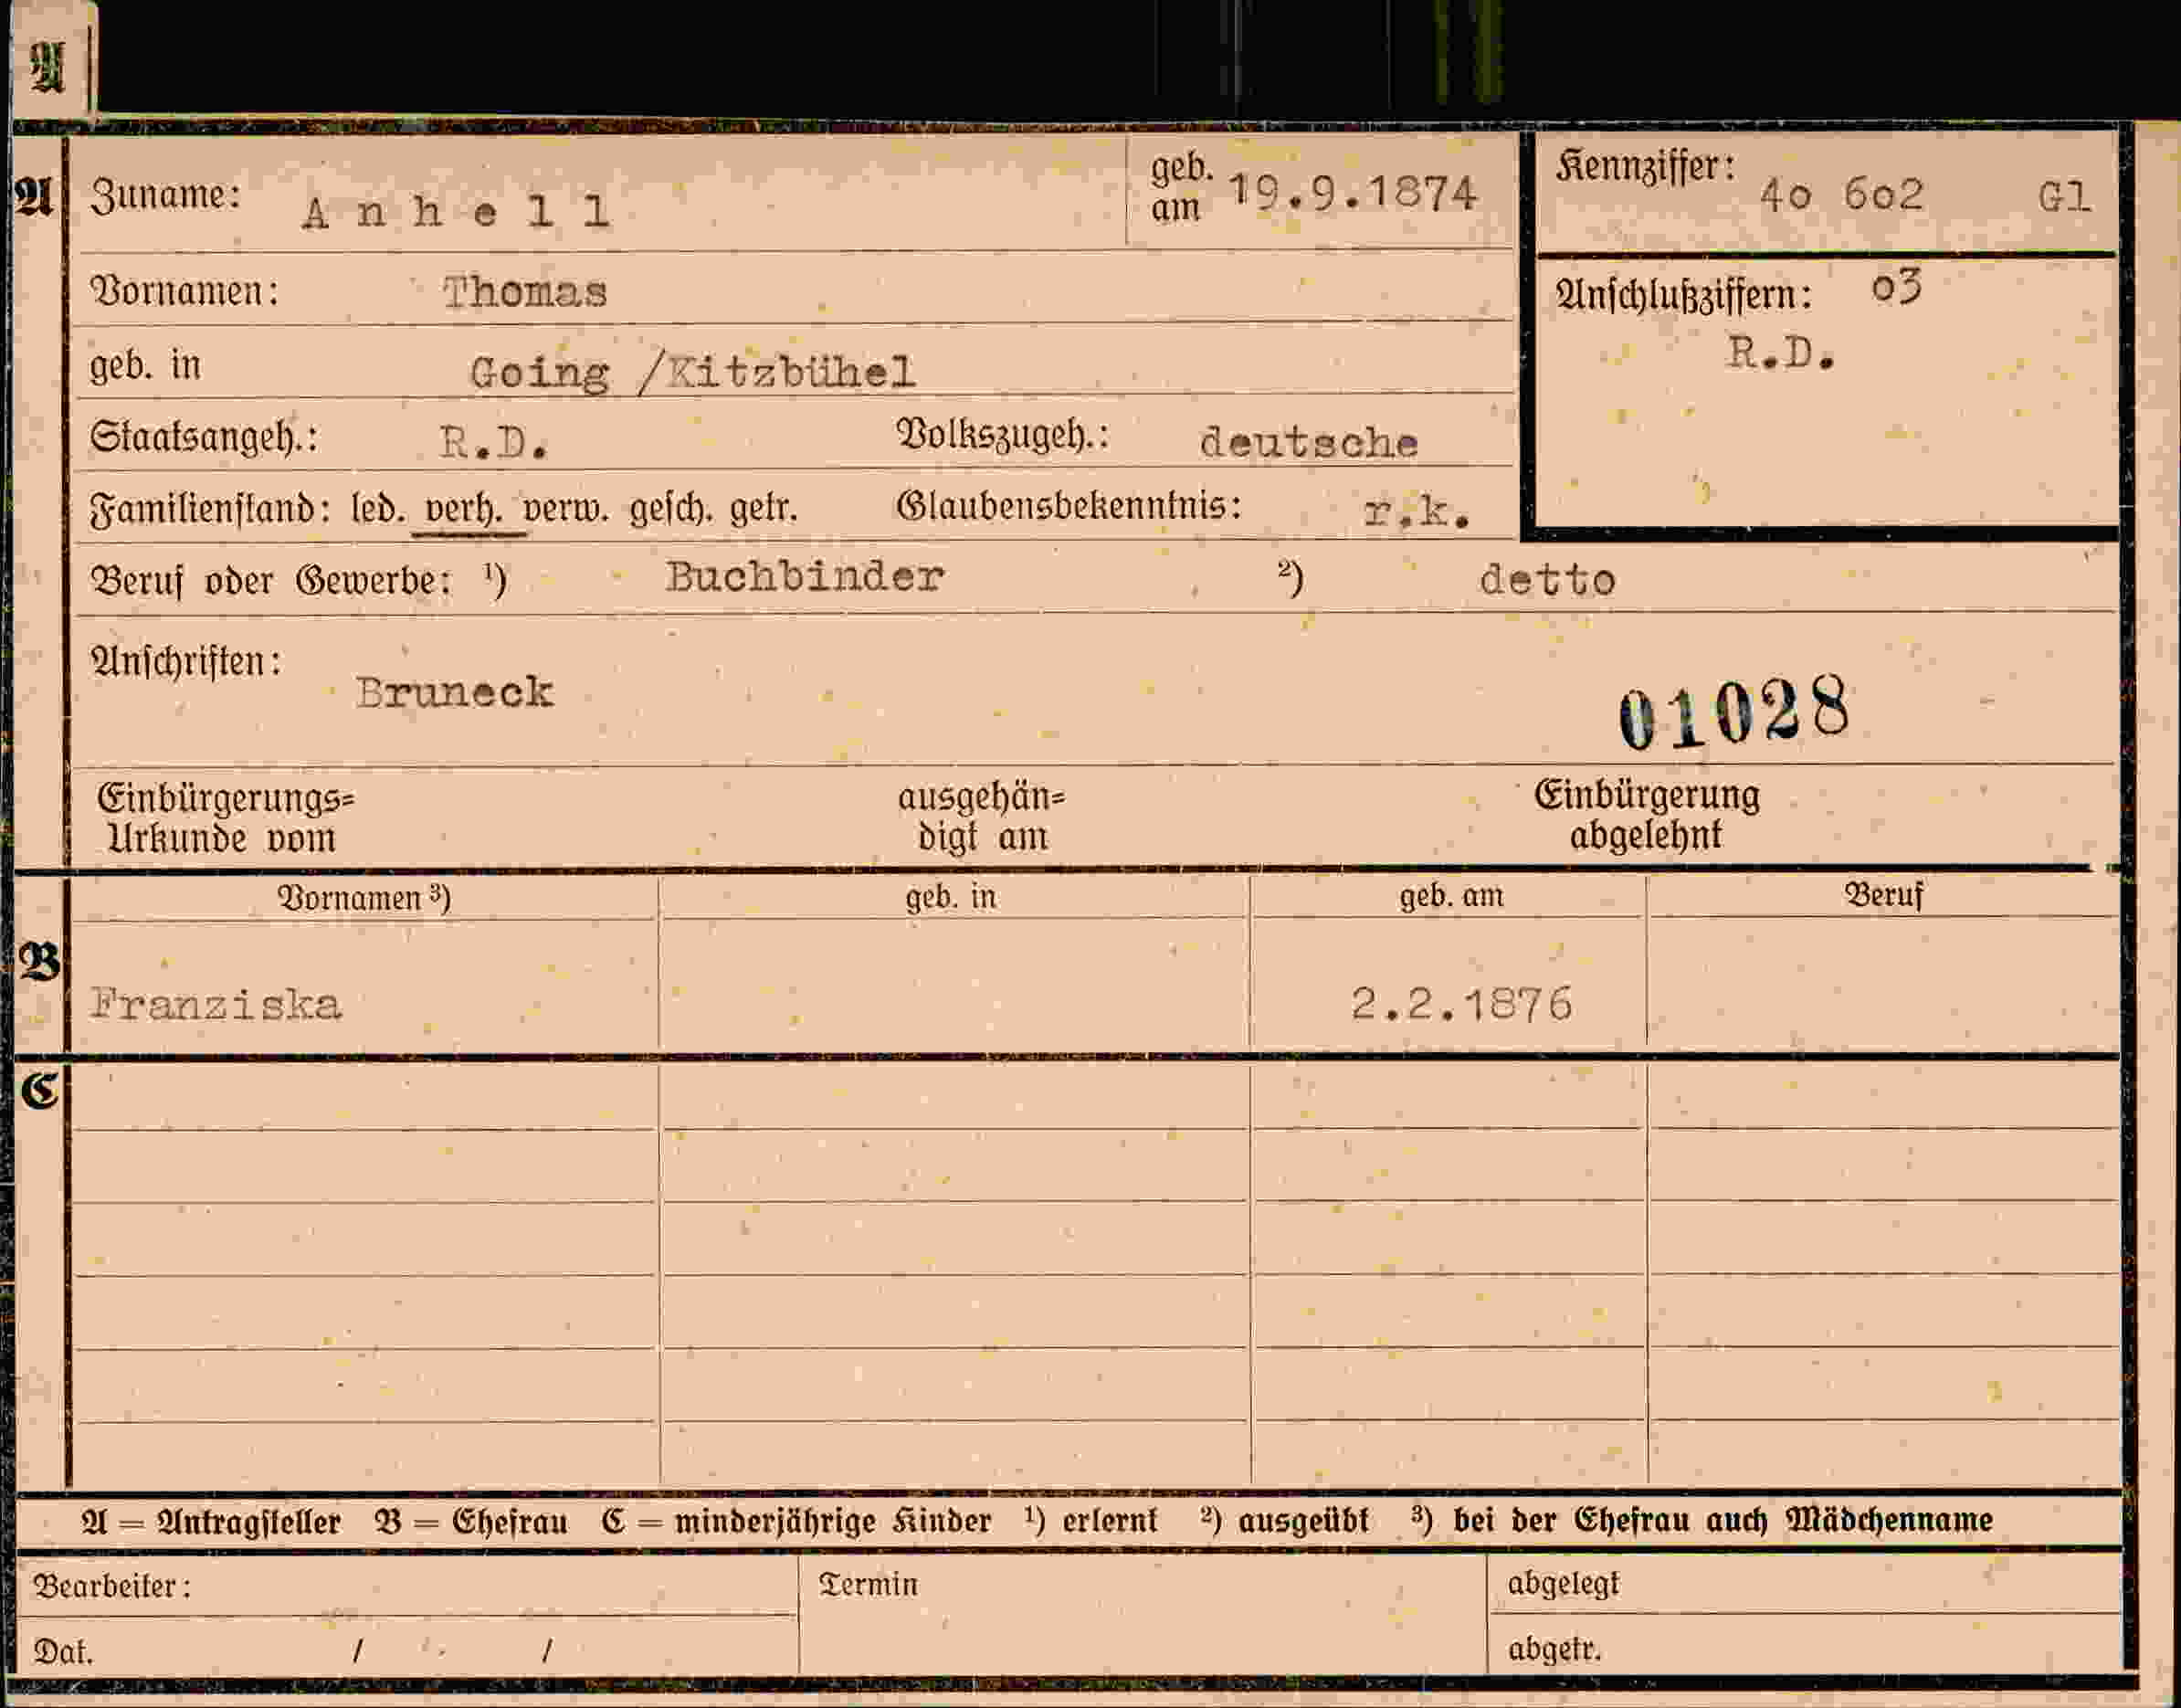 A
A Zuname: Anhell geb. am 19.9.1874 Kennziffer: 4o 6o2 Gl
Vornamen: Thomas Anschlußziffern: o3
R.D.
geb. in Going /Kitzbühel
Staatsangeh.: R.D. Volkszugeh.: deutsche
Familienstand: led. verh. verw. gesch. getr. Glaubensbekenntnis: r.k.
Beruf oder Gewerbe: ¹) Buchbinder ²) detto
Anschriften: Bruneck
01028
Einbürgerungs= ausgehän= Einbürgerung
Urkunde vom digt am abgelehnt
Vornamen ³) geb. in geb. am Beruf
B
Franziska 2.2.1876
C
A = Antragsteller B = Ehefrau C = minderjährige Kinder ¹) erlernt ²) ausgeübt ³) bei der Ehefrau auch Mädchenname
Bearbeiter: Termin abgelegt
Dat. / / abgetr.